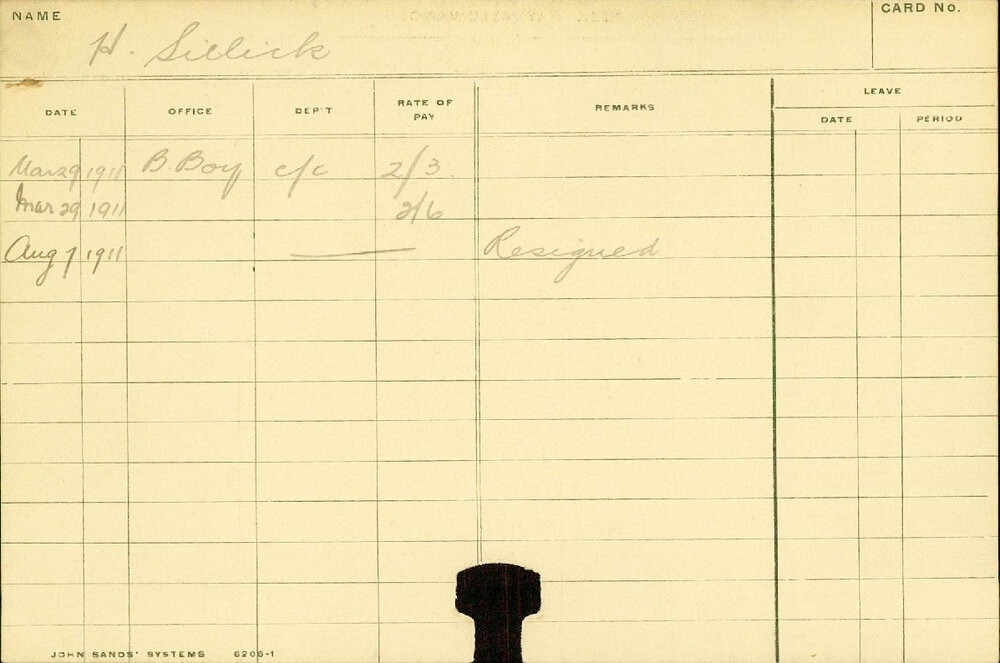 NAME
H. Sillick
CARD No.
DATE OFFICE DEP'T RATE OF PAY REMARKS LEAVE
DATE PERIOD
Mar 29 1911 B. Boy c/c 2/3
Mar 29 1911 2/6
Aug 7 1911 — Resigned
JOHN SANDS' SYSTEMS 6206-1